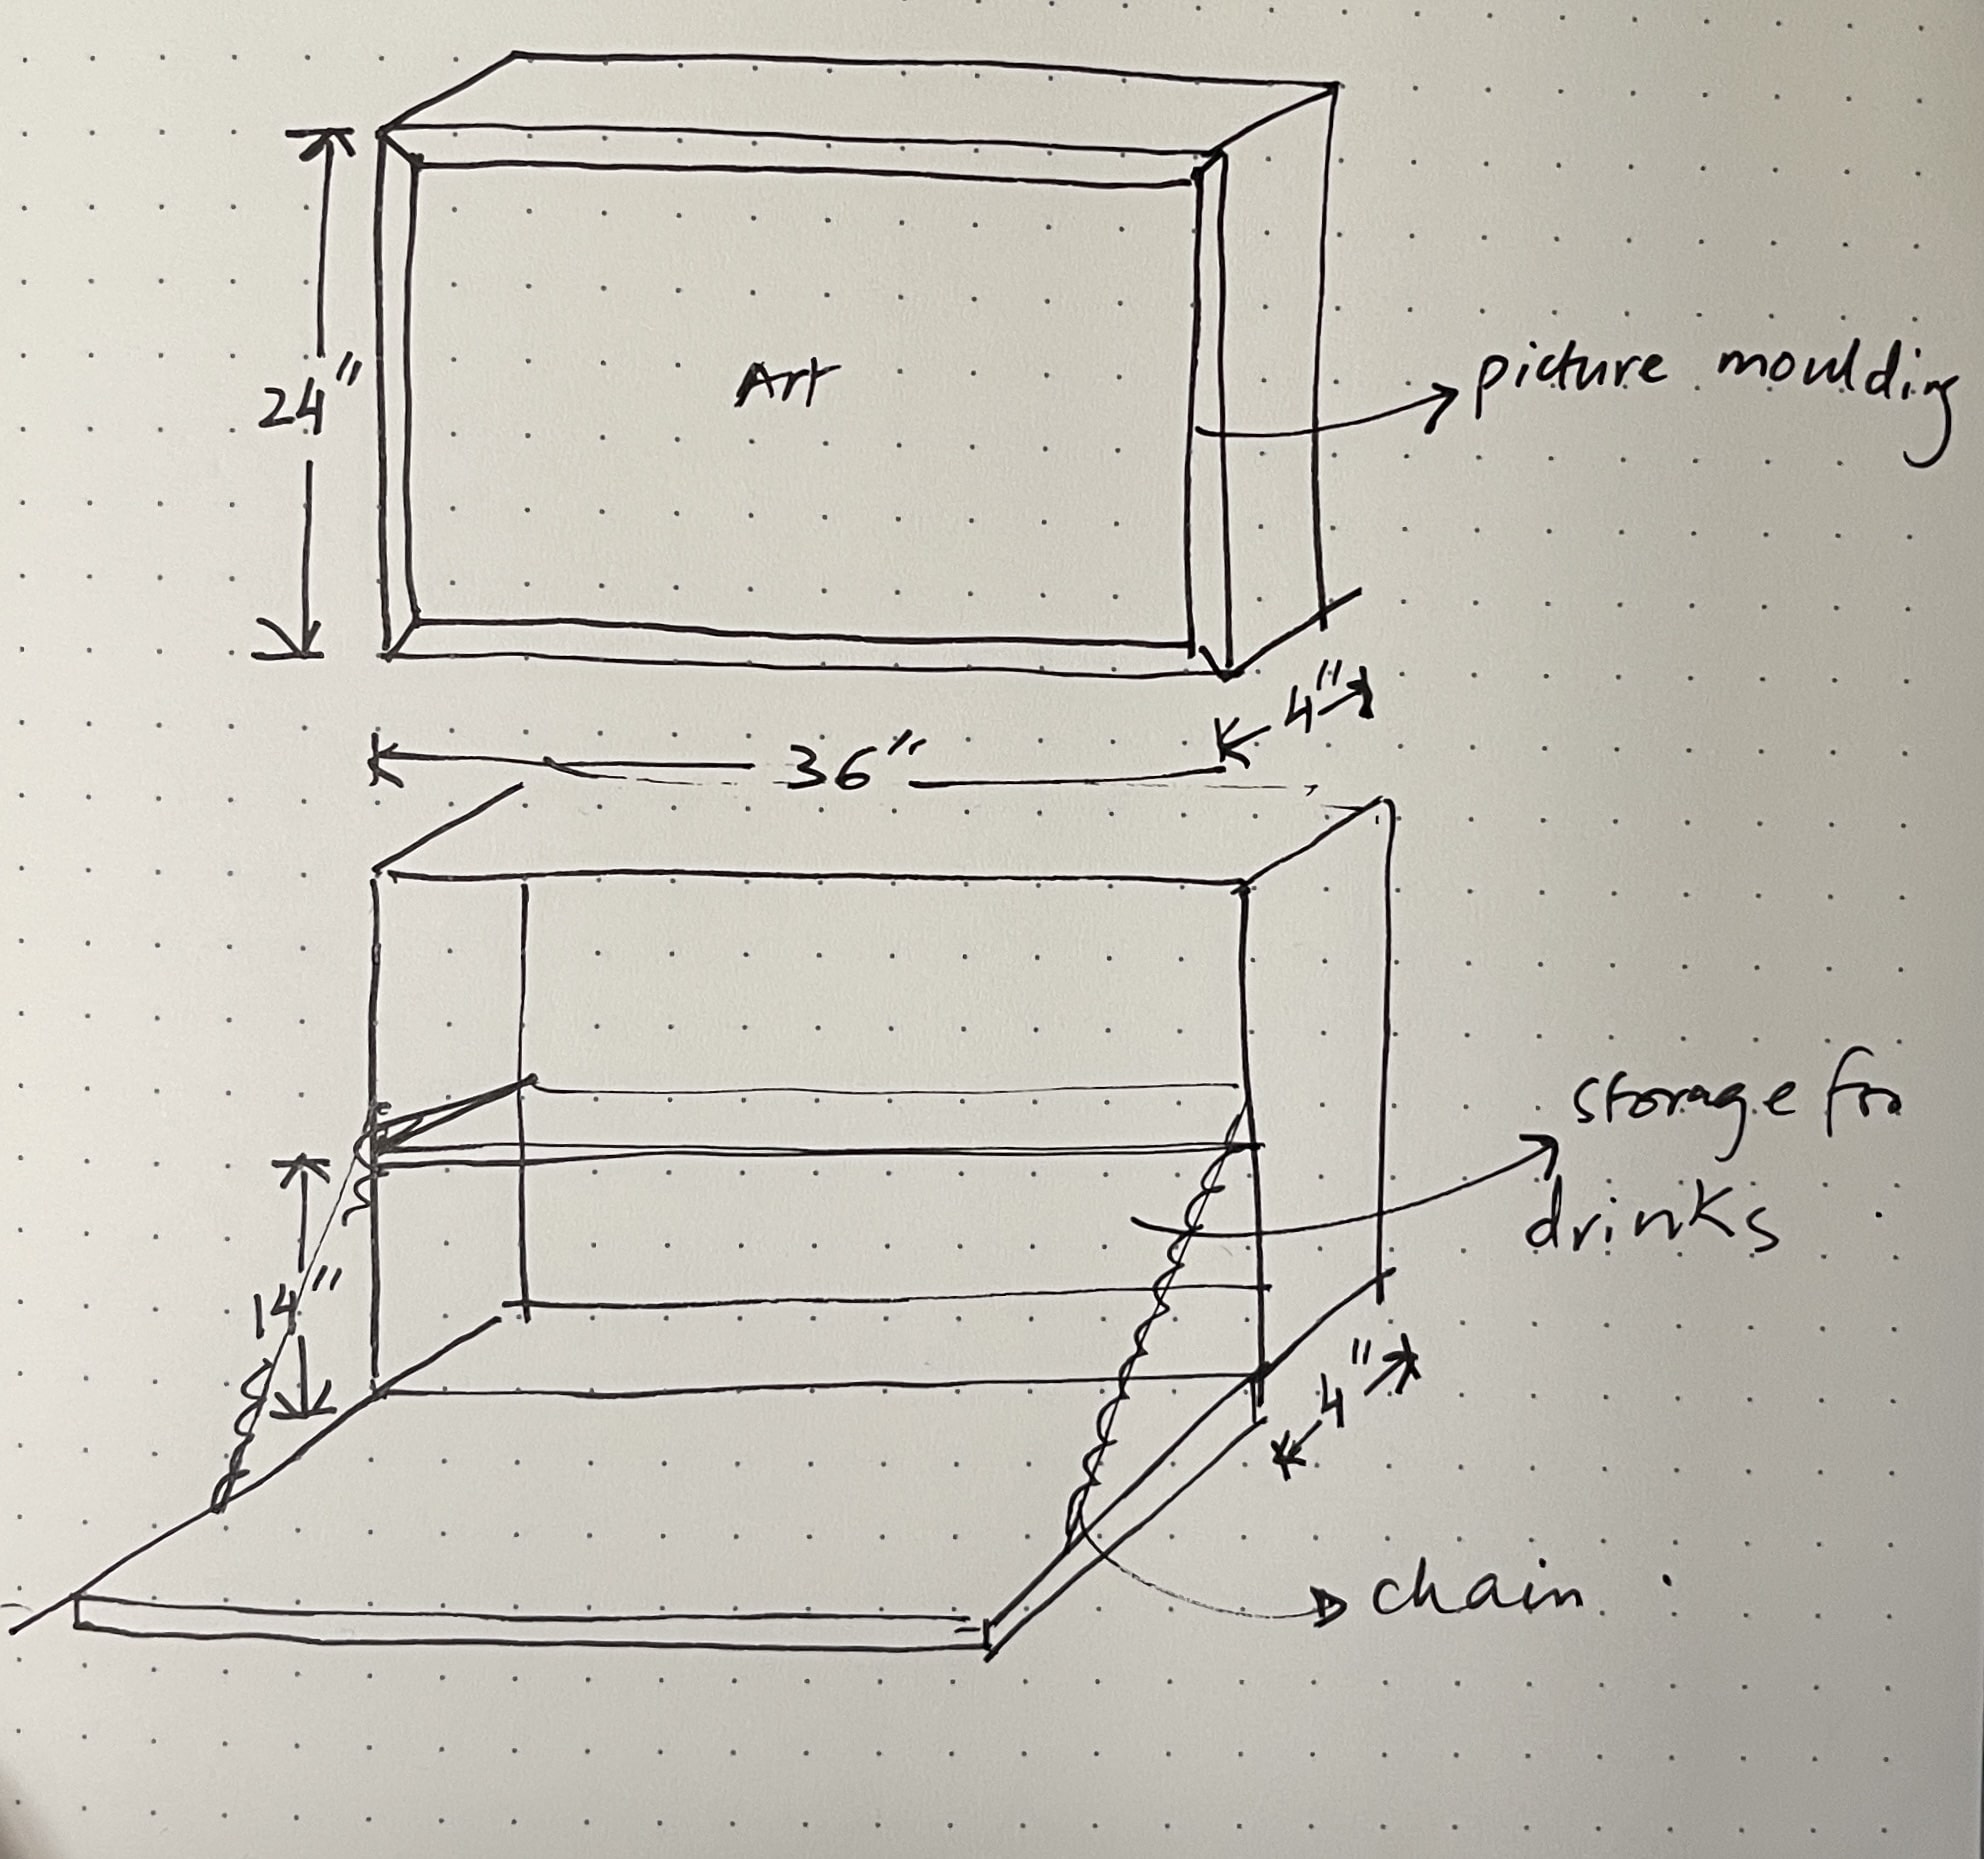 24"
Art
picture moulding
4"
36"
storage for
drinks
14"
4"
chain